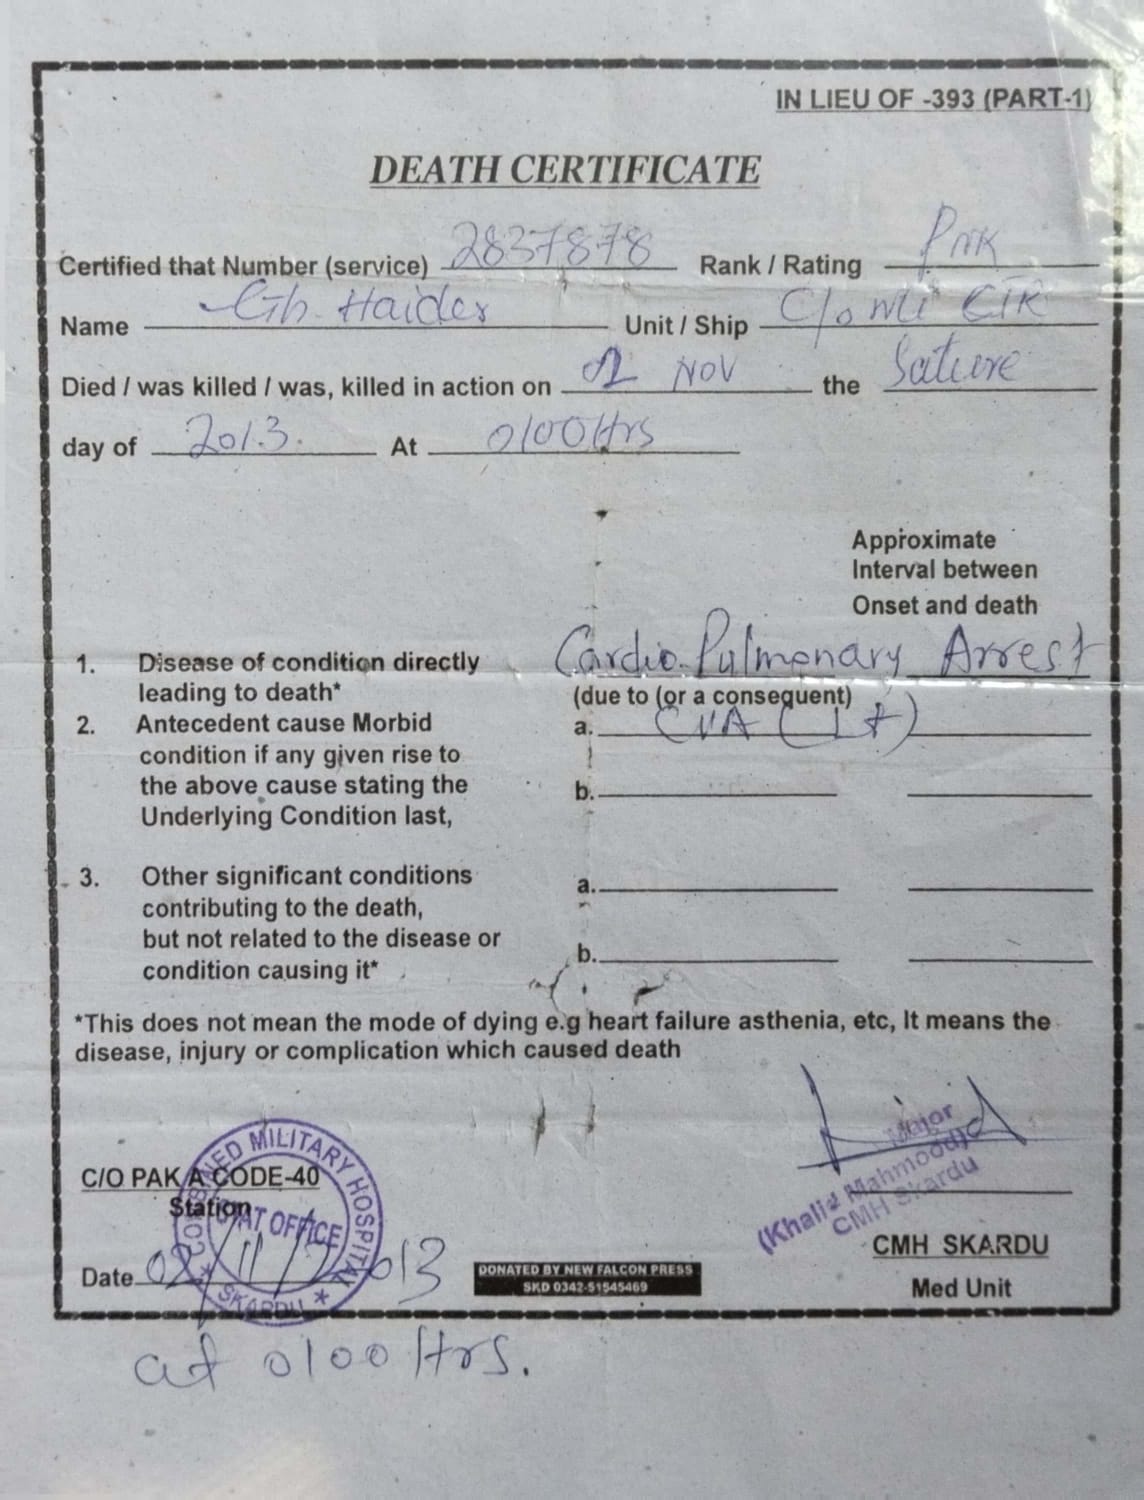 IN LIEU OF -393 (PART-1)
DEATH CERTIFICATE
Certified that Number (service) 2837878 Rank / Rating
Name Gh. Haider Unit / Ship C/o
Died / was killed / was, killed in action on 02 NOV the
day of 2013. At 0100 Hrs
Approximate
Interval between
Onset and death
1. Disease of condition directly Cardio-Pulmonary Arrest
leading to death* (due to (or a consequent)
2. Antecedent cause Morbid a. CVA (Lt)
condition if any given rise to
the above cause stating the b.
Underlying Condition last,
3. Other significant conditions a.
contributing to the death,
but not related to the disease or b.
condition causing it*
*This does not mean the mode of dying e.g heart failure asthenia, etc, It means the
disease, injury or complication which caused death
Major
(Khalid Mahmood)
CMH Skardu
C/O PAK A CODE-40
Station
COMBINED MILITARY HOSPITAL
STAT OFFICE
* SKARDU *
CMH SKARDU
Date 02/11/2013
DONATED BY NEW FALCON PRESS
SKD 0342-51545469
Med Unit
at 0100 Hrs.